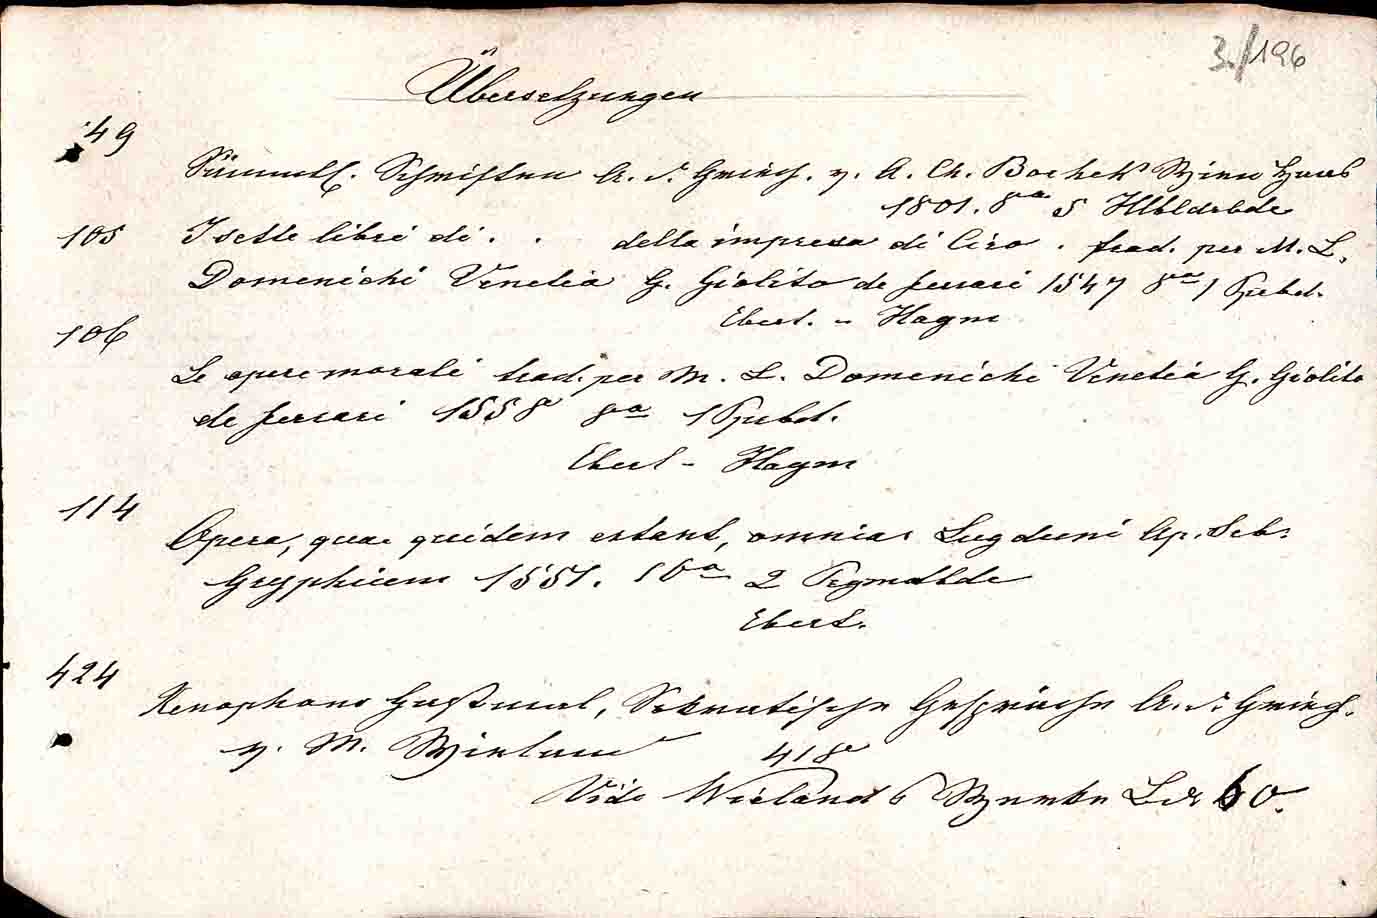 3./196
Übersetzungen
49
Sämmtl. Schriften A. d. Griech. v. A. Ch. Borhek Wien Haas
1801. 8° 5 Hlbldrbde
105 I sette libri di . . della impresa di Ciro . trad. per M. L.
Domenichi Venetia G. Giolito de Ferrari 1547 8° 1 Ppbd.
Ebert. - Hagm
106
Le opere morali trad. per M. L. Domenichi Venetia G. Giolito
de Ferrari 1558 8° 1 Ppbd.
Ebert - Hagm
114
Opera, quae quidem extant, omnia Lugduni Ap. Seb.
Gryphium 1551. 16° 2 Prgmdbde
Ebert.
424
Xenophons Gastmal, Sokratische Gespräche A. d. Griech.
v. M. Wieland 418
Vide Wieland's Werke Bd 60.